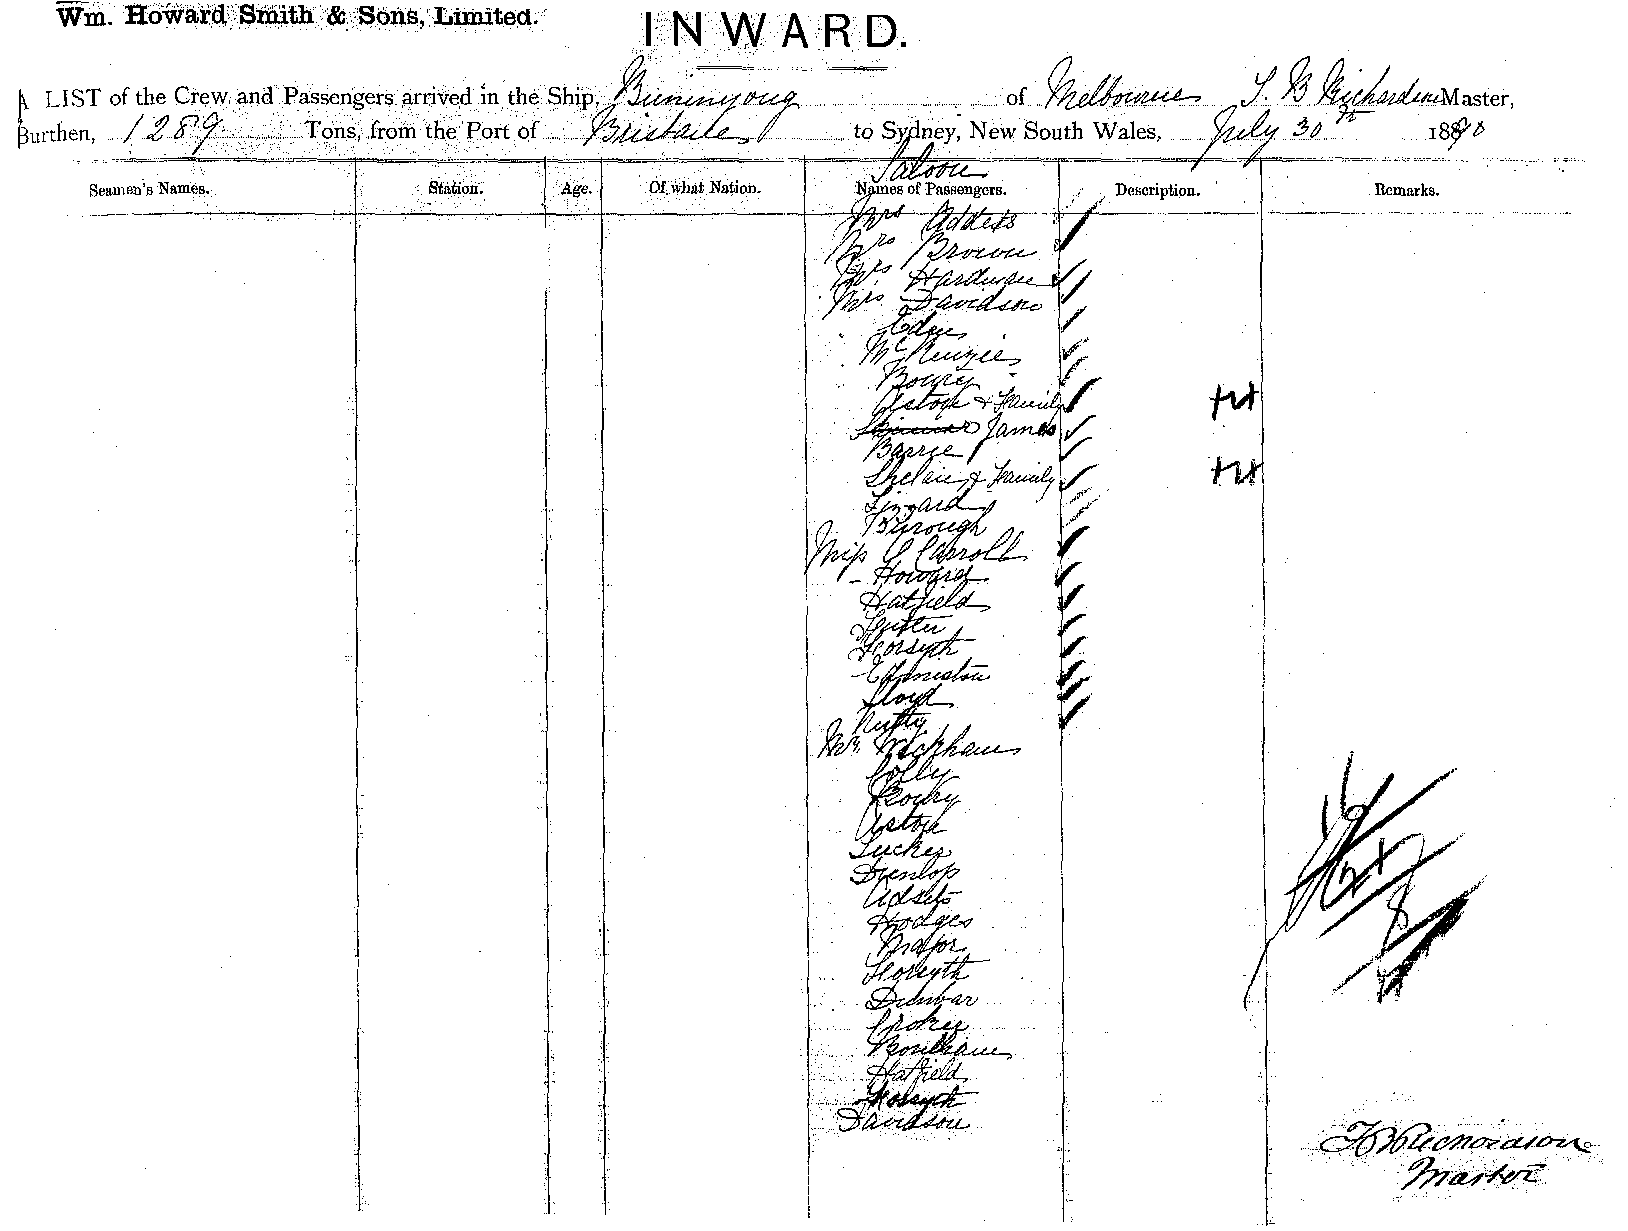 Wm. Howard Smith & Sons, Limited.
INWARD.
A LIST of the Crew and Passengers arrived in the Ship, Buninyong of Melbourne T. B Richardson Master,
Burthen, 1289 Tons, from the Port of Brisbane to Sydney, New South Wales, July 30th 1890
Saloon
Seamen's Names. Station. Age. Of what Nation. Names of Passengers. Description. Remarks.
Mrs Addets
Mrs Brown
Mrs Hardware
Mrs Davidson
Eden
McKenzie
Boury
Astop & Family
James
Barrie
& Family
Lizzard
Burough
Miss C Carroll
Howard
Hatfield
Forsyth
Edmiston
Lloyd
Mr Wickham
Colly
Boury
Astop
Tucker
Dunlop
Adsets
Hodges
Major
Forsyth
Dunbar
Croker
Bonham
Hatfield
Forsyth
Davidson
T B Richardson
Master